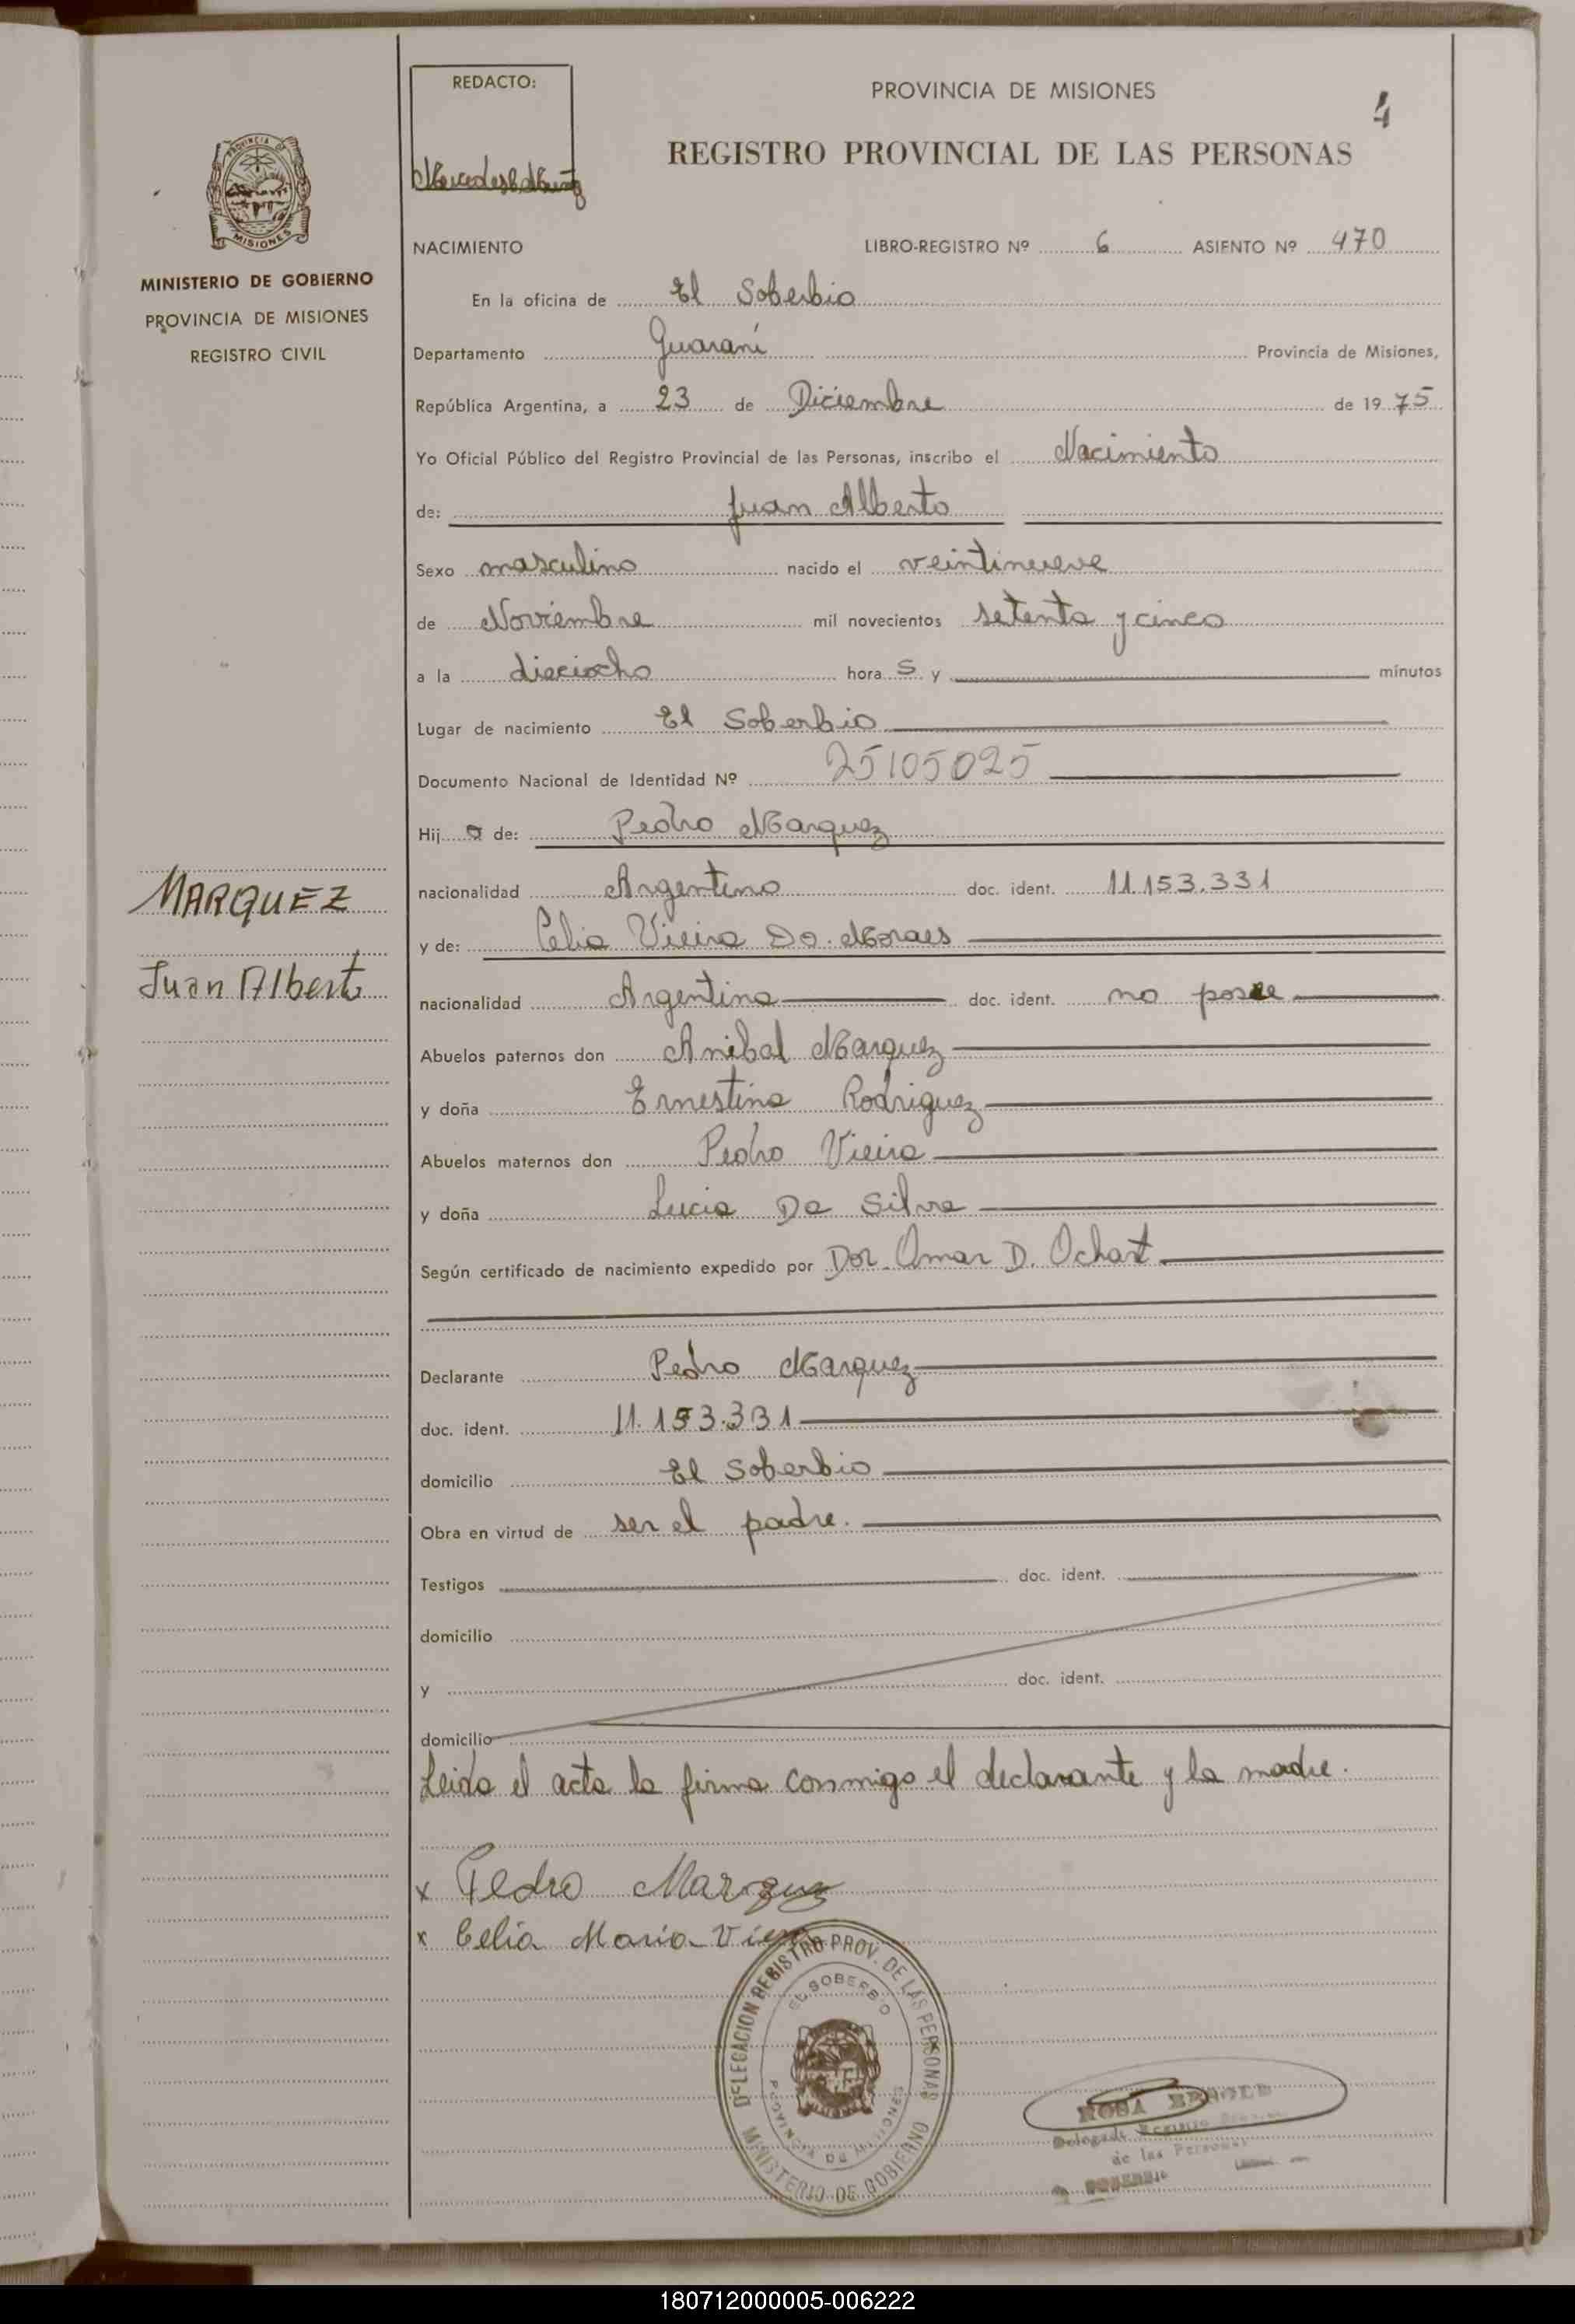 REDACTO:
PROVINCIA DE MISIONES
4
REGISTRO PROVINCIAL DE LAS PERSONAS
PROVINCIA DE
MISIONES
MINISTERIO DE GOBIERNO
PROVINCIA DE MISIONES
REGISTRO CIVIL
NACIMIENTO LIBRO-REGISTRO Nº 6 ASIENTO Nº 470
En la oficina de El Soberbio
Departamento Guaraní Provincia de Misiones,
República Argentina, a 23 de Diciembre de 19 75
Yo Oficial Público del Registro Provincial de las Personas, inscribo el Nacimiento
de: Juan Alberto
Sexo masculino nacido el veintinueve
de Noviembre mil novecientos setenta y cinco
a la dieciocho hora s y minutos
Lugar de nacimiento El Soberbio
Documento Nacional de Identidad Nº 25105025
Hij o de: Pedro Marquez
nacionalidad Argentino doc. ident. 11.153.331
y de: Celia Vieira Do. Moraes
nacionalidad Argentina doc. ident. no posee
Abuelos paternos don Anibal Marquez
y doña Ernestina Rodriguez
Abuelos maternos don Pedro Vieira
y doña Lucia Da Silva
Según certificado de nacimiento expedido por Dor. Omar D. Ochart
Declarante Pedro Marquez
doc. ident. 11.153.331
domicilio El Soberbio
Obra en virtud de ser el padre.
Testigos doc. ident.
domicilio
y doc. ident.
domicilio
Leida el acta la firma conmigo el declarante y la madre.
MARQUEZ
Juan Alberto
x Pedro Marquez
x Celia Maria Viera
DELEGACION REGISTRO PROV. DE LAS PERSONAS
EL SOBERBIO
PROVINCIA DE MISIONES
MINISTERIO DE GOBIERNO
ROSA
Delegada Registro
de las Personas
SOBERBIO
180712000005-006222